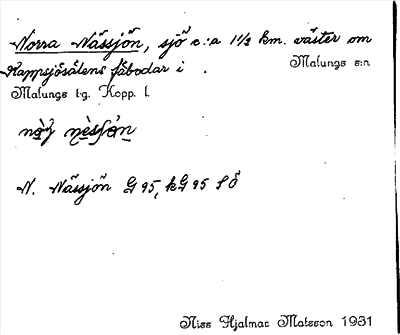 Norra Nässjön, sjö c:a 1 1/2 km. väster om
Kappsjösälens fäbodar i . Malungs s:n
Malungs tg. Kopp. l.
N. Nässjön G 95, kG 95 SÖ
Niss Hjalmar Matsson 1931